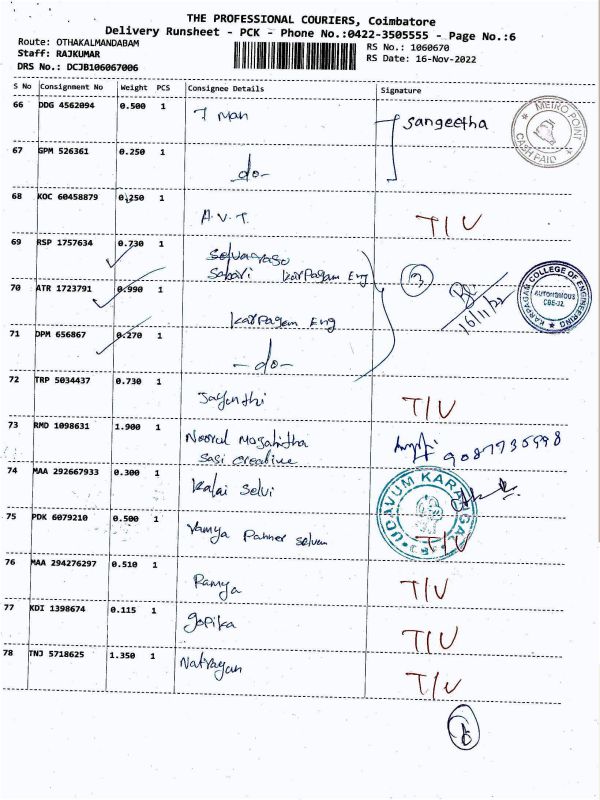 THE PROFESSIONAL COURIERS, Coimbatore
Delivery Runsheet - PCK - Phone No.:0422-3505555 - Page No.:6
Route: OTHAKALMANDABAM
RS No.: 1060670
Staff: RAJKUMAR
RS Date: 16-Nov-2022
DRS No.: DCJB106067006
S No Consignment No Weight PCS Consignee Details Signature
66 DDG 4562094 0.500 1 T Man Sangeetha
METRO POINT
CASH PAID
67 GPM 526361 0.250 1 -do-
68 KOC 60458879 0.250 1 A.V.T. T/U
69 RSP 1757634 0.730 1
Sabari Karpagam Eng
3
70 ATR 1723791 0.990 1 Karpagam Eng
16/11/22
KARPAGAM COLLEGE OF ENGINEERING
AUTONOMOUS
CBE-32
71 DPM 656867 0.270 1 -do-
72 TRP 5034437 0.730 1 Jayanthi T/U
73 RMD 1098631 1.900 1 Noorul
Sasi creative
74 MAA 292667933 0.300 1 Kalai Selvi
UDAVUM KARANGAL
75 PDK 6079210 0.500 1 Vamya selvam T/U
76 MAA 294276297 0.510 1 Ramya T/U
77 KDI 1398674 0.115 1 Gopika T/U
78 TNJ 5718625 1.350 1 Natrayan T/U